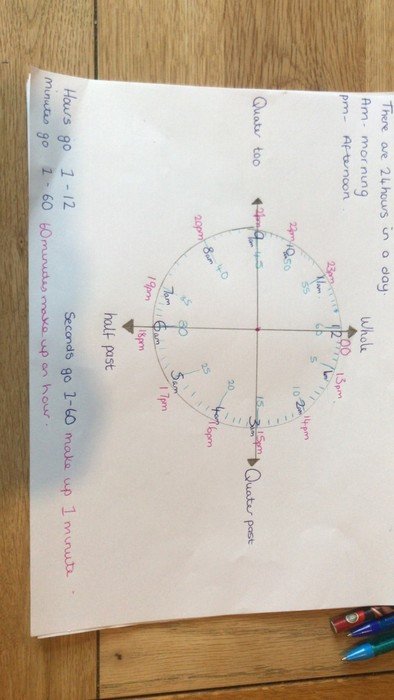 There are 24 hours in a day.
Am - morning
pm - Afternoon
Whole
00
12
60
23pm
11am
55
13pm
1am
5
22pm
10am
50
14pm
2am
10
Quater too
21pm
9am
45
15
3am
15pm
Quater past
20pm
8am
40
20
4am
16pm
19pm
7am
35
25
5am
17pm
30
6am
18pm
half past
Hours go 1 - 12
Seconds go 1-60 make up 1 minute.
minutes go 1 - 60
60 minutes make up an hour.